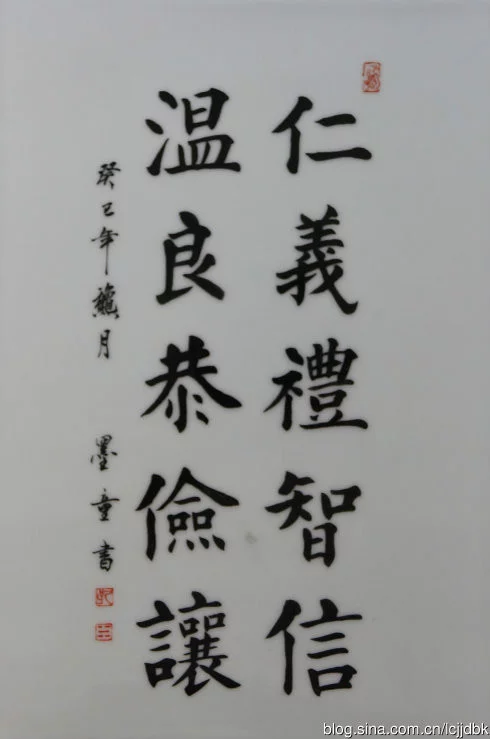 仁義禮智信
温良恭儉讓
癸巳年 龝月 墨童書
blog.sina.com.cn/lcjjdbk